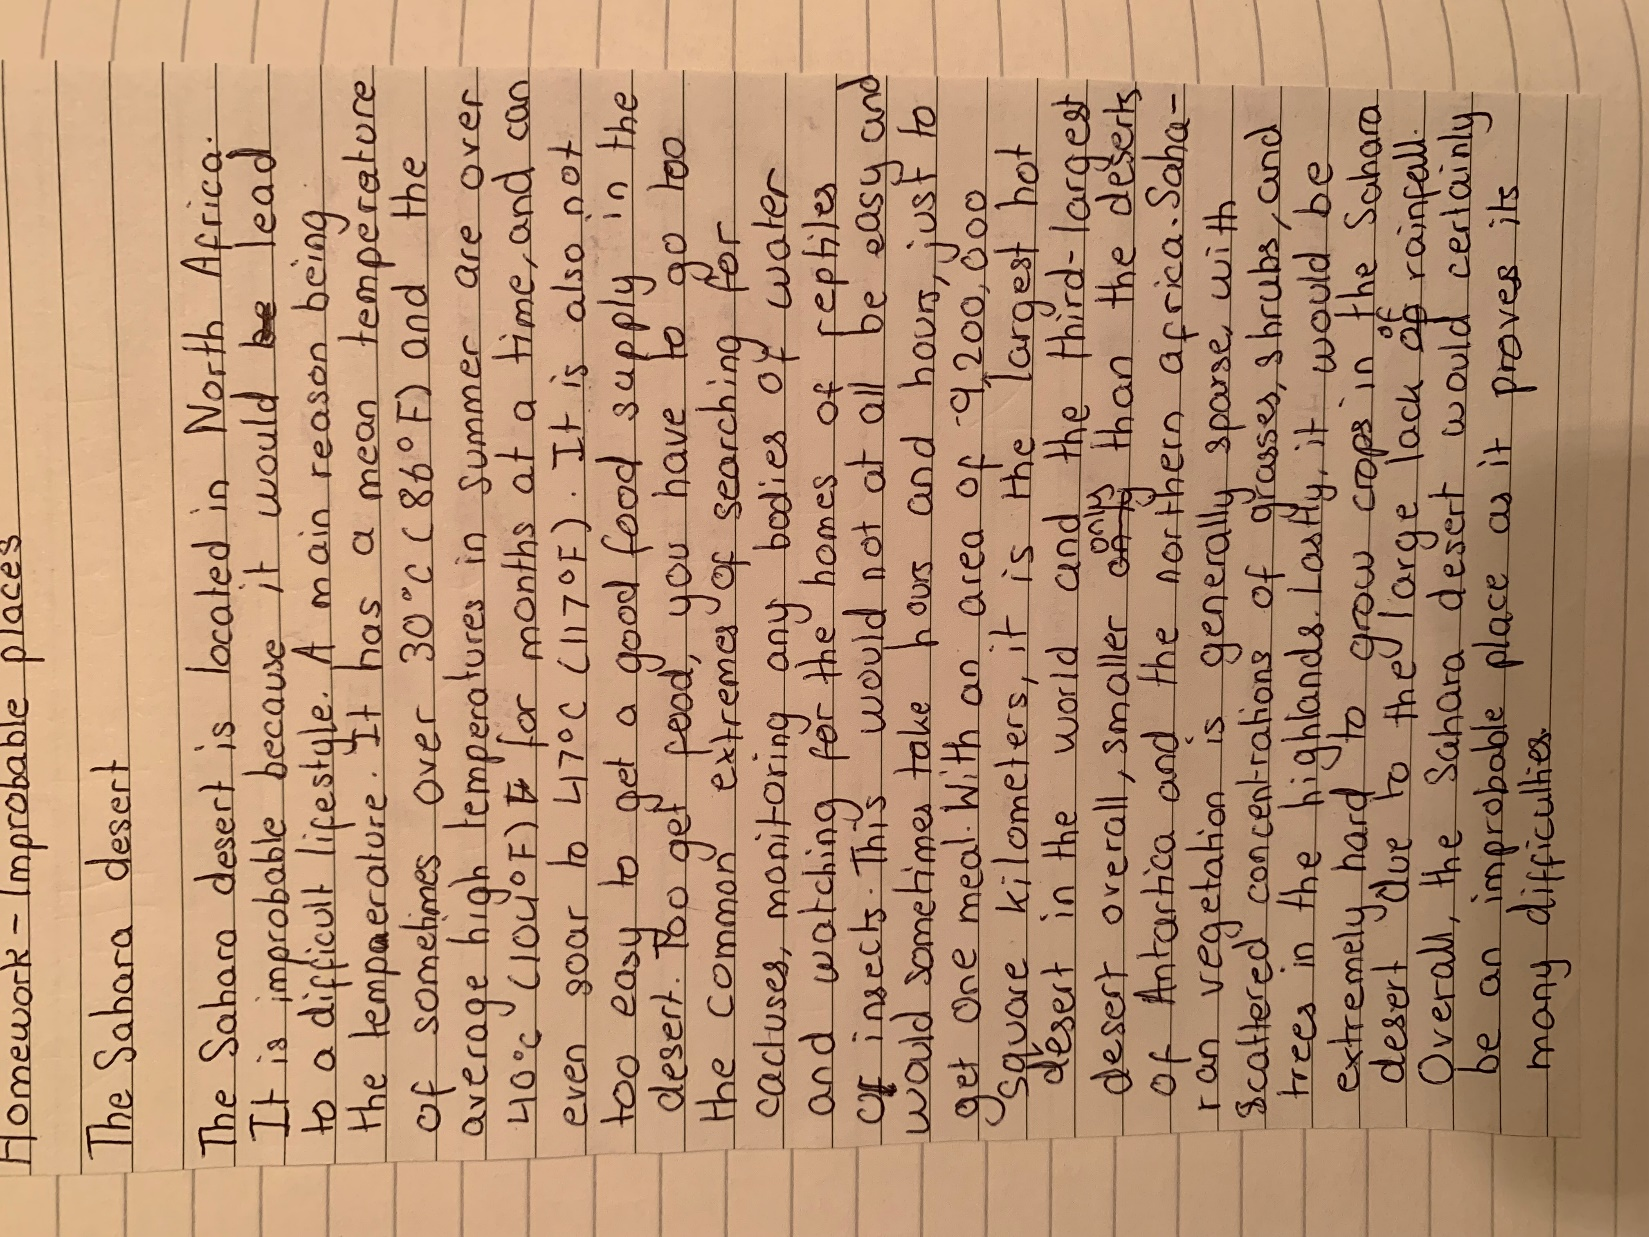 Homework - Improbable places
The Sahara desert
The Sahara desert is located in North Africa.
It is improbable because it would be lead
to a difficult lifestyle. A main reason being
the tempaerature. It has a mean temperature
of sometimes over 30°C (86°F) and the
average high temperatures in summer are over
40°C (104°F) for months at a time, and can
even soar to 47°C (117°F). It is also not
too easy to get a good food supply in the
desert. Too get food, you have to go too
the common extremes of searching for
cactuses, monitoring any bodies of water
and watching for the homes of reptiles
or insects. This would not at all be easy and
would sometimes take hours and hours, just to
get one meal. With an area of 9,200,000
square kilometers, it is the largest hot
desert in the world and the third-largest
desert overall, smaller only only than the deserts
of Antartica and the northern africa. Saha-
ran vegetation is generally sparse, with
scattered concentrations of grasses, shrubs, and
trees in the highlands. Lastly, it would be
extremely hard to grow crops in the Sahara
desert due to the large lack of of rainfall.
Overall, the Sahara desert would certainly
be an improbable place as it proves its
many difficulties.